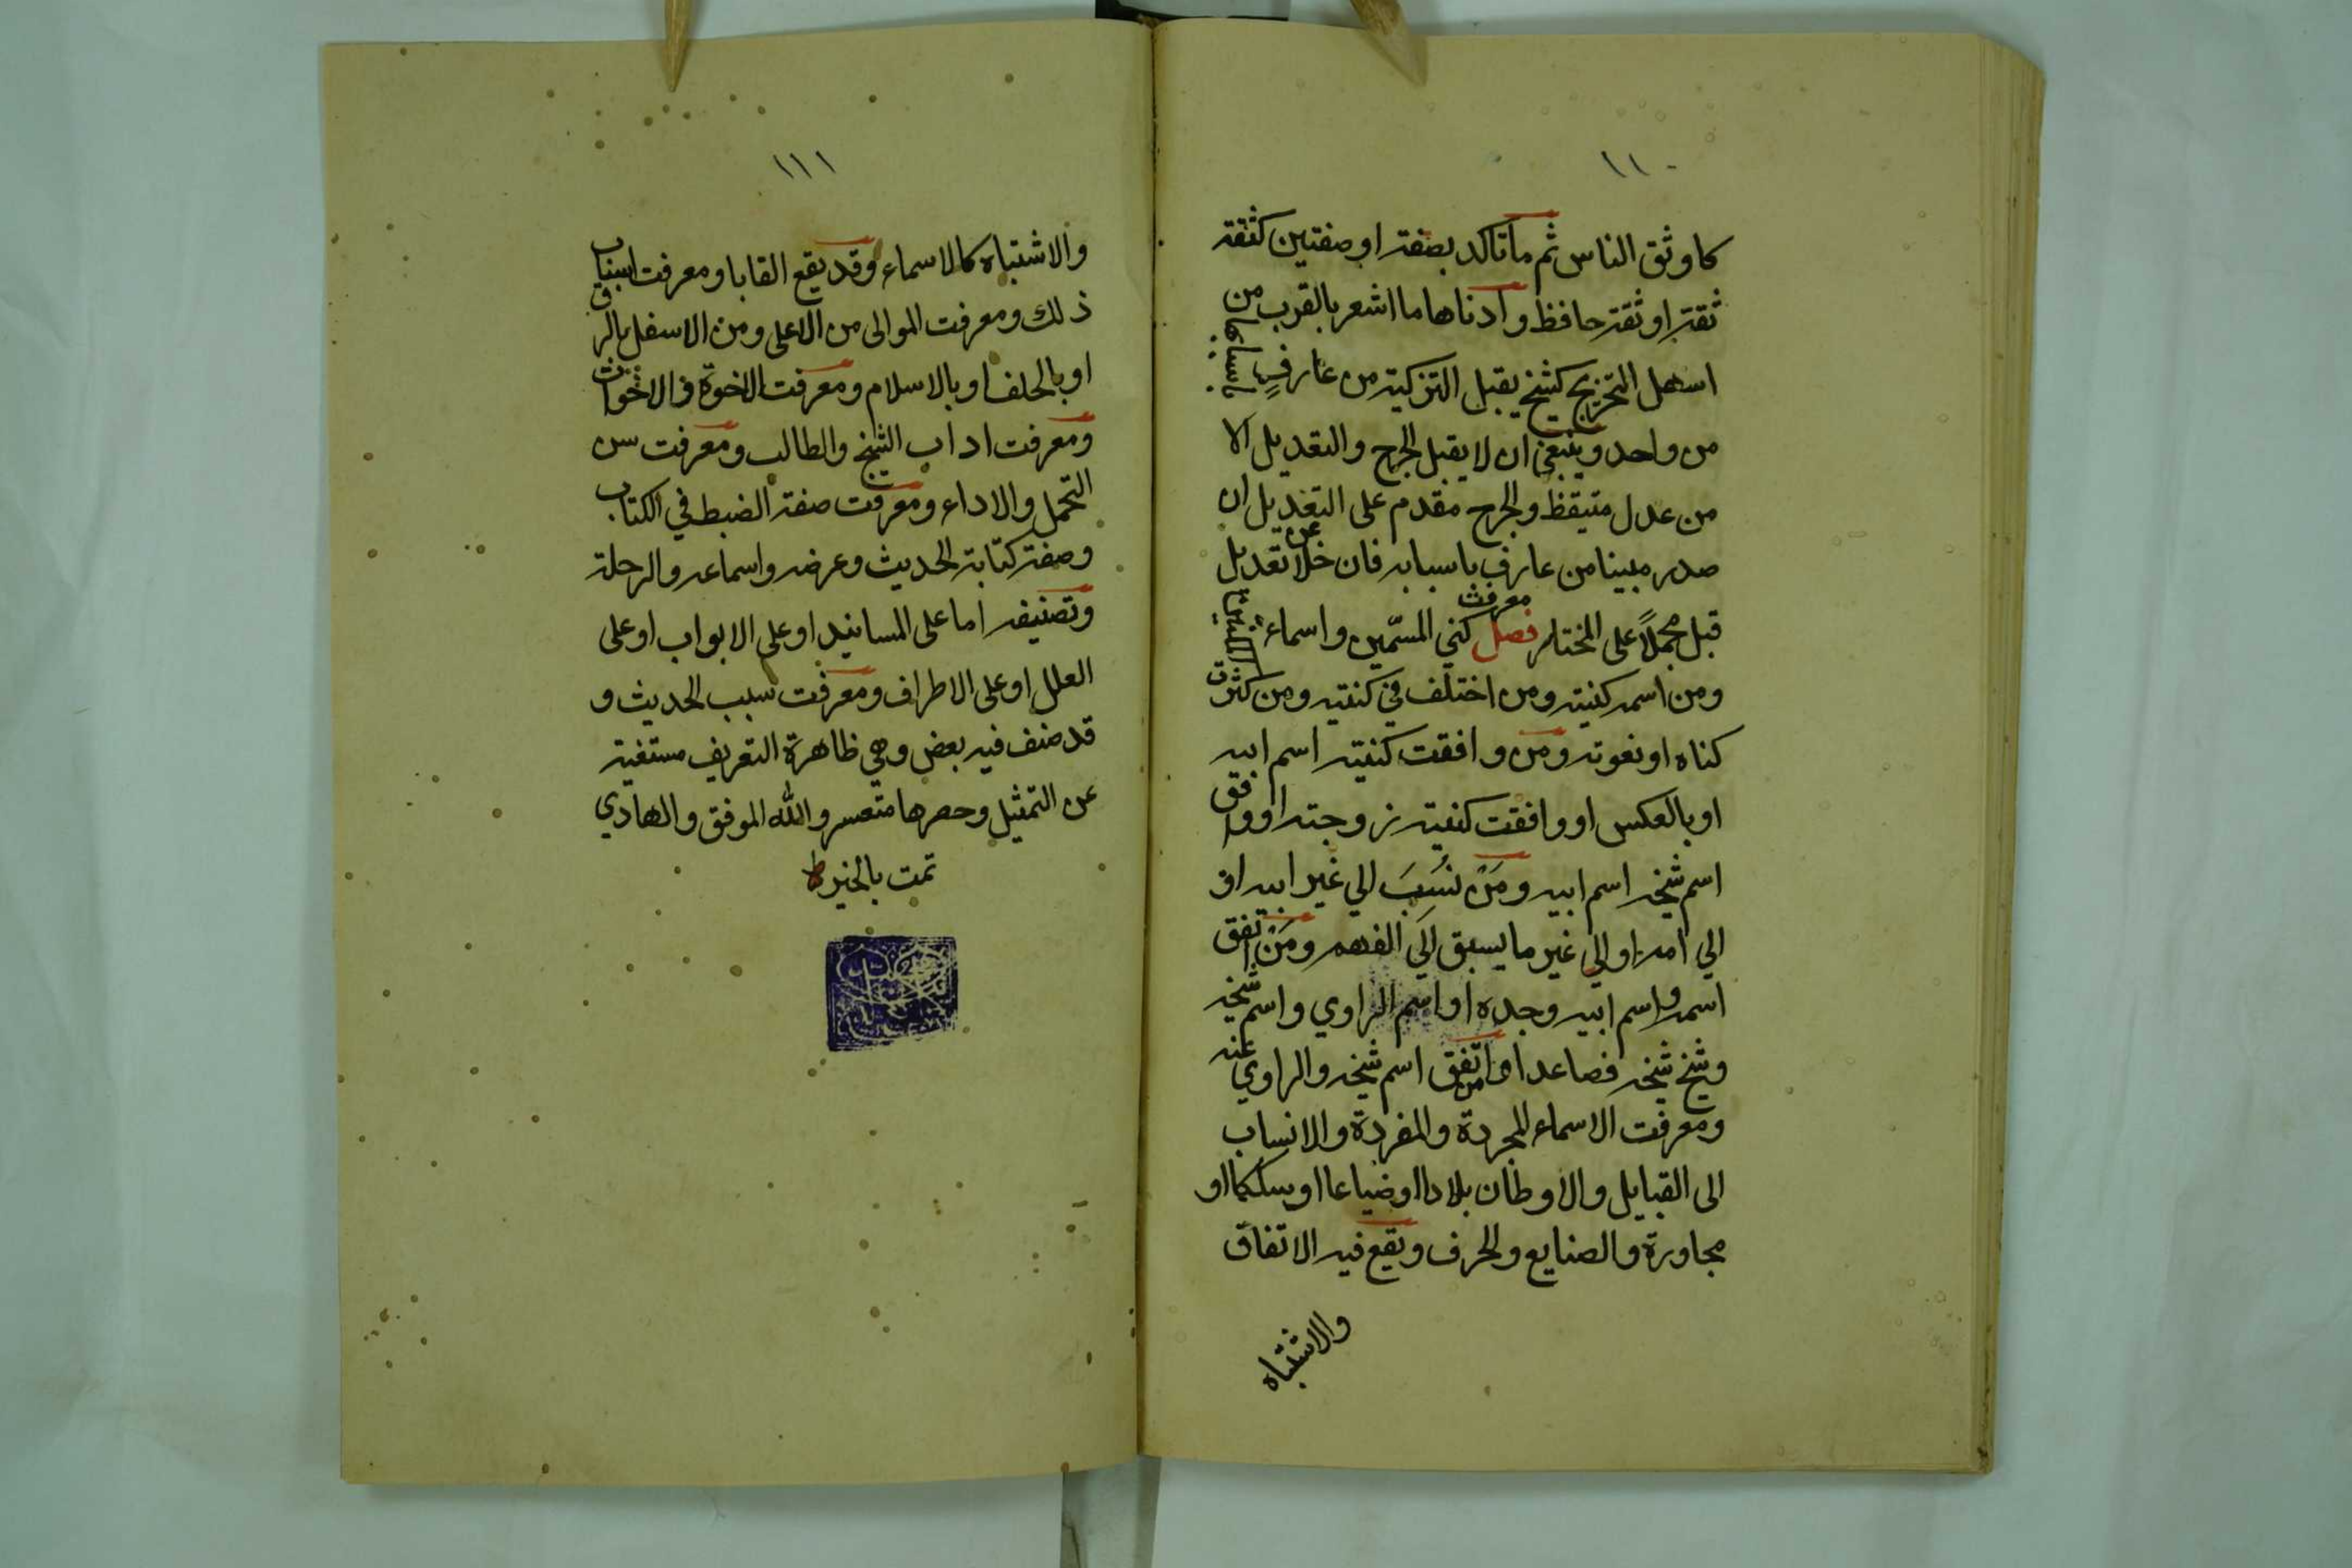 ١١٠
كاوثق الناس ثم ما تاكد بصفة او صفتين كثقة
ثقة او ثقة حافظ وادناها ما اشعر بالقرب من
اسهل التجريح كشيخ يقبل التزكية من عارفٍ باسبابها
من واحد وينبغي ان لا يقبل الجرح والتعديل الا
من عدل متيقظ والجرح مقدم على التعديل ان
صدر مبينا من عارف باسبابه فان خلا عن تعديل
قبل مجملاً على المختار فصل معرفت كني المسمّين واسماء المكنين
ومن اسمه كنيته ومن اختلف في كنيته ومن كثرت
كناه او نعوته ومن وافقت كنيته اسم ابيه
او بالعكس او وافقت كنيته زوجته او وافق
اسم شيخه اسم ابيه ومَنْ نُسِبَ الي غير ابيه او
الي امه او الي غير ما يسبق الي الفهم ومَنْ اتفق
اسمه واسم ابيه وجده او اسم الراوي واسم شيخه
وشيخ شيخه فصاعدا او من اتفق اسم شيخه والراوي عنه
ومعرفت الاسماء المجردة والمفردة والانساب
الى القبايل والاوطان بلادا او ضياعا او سككا او
مجاورة والصنايع والحرف ويقع فيه الاتفاق
والاشتباه
١١١
والاشتباه كالاسماء وقد يقع القابا ومعرفت اسباب
ذلك ومعرفت الموالى من الاعلى ومن الاسفل بالرق
او بالحلف او بالاسلام ومعرفت الاخوة والاخوات
ومعرفت اداب الشيخ والطالب ومعرفت سن
التحمل والاداء ومعرفت صفة الضبط في الكتاب
وصفة كتابة الحديث وعرضه واسماعه والرحلة
وتصنيفه اما على المسانيد او على الابواب او على
العلل او على الاطراف ومعرفت سبب الحديث و
قد صنف فيه بعض وهي ظاهرة التعريف مستغنية
عن التمثيل وحصرها متعسر والله الموفق والهادي
تمت بالخير